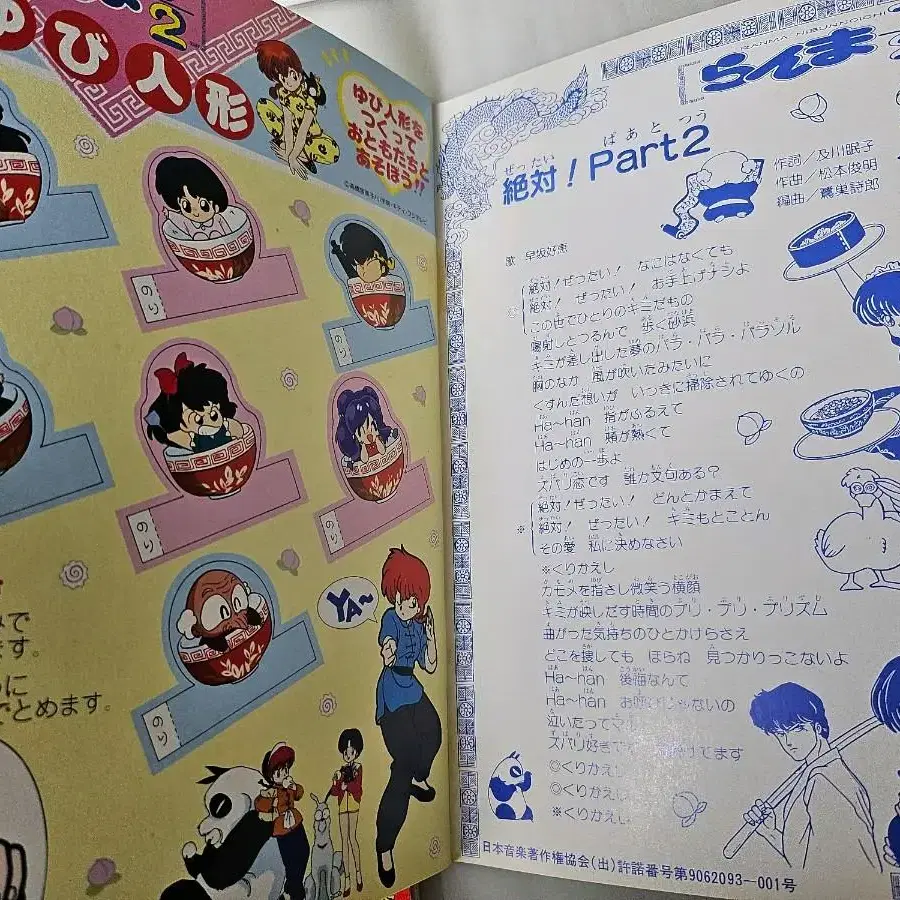 2
ゆび人形
ゆび人形を
つくって
おともだちと
あそぼう!!
のり
のり
のり
のり
のり
YA~
みで
ます。
うに
でとめます。
らんま
ぜったい ぱあとつう
絶対!Part2
作詞/及川眠子
作曲/松本俊明
編曲/鷺巣詩郎
歌 早坂好恵
絶対!ぜったい! なこはなくても
絶対! ぜったい! お手上げナシよ
この世でひとりのキミだもの
陽射しとつるんで 歩く砂浜
キミが差し出した夢のパラ・パラ・パラソル
胸のなか 風が吹いたみたいに
くすんだ想いが いっきに掃除されてゆくの
Ha~han 指がふるえて
Ha~han 頬が熱くて
はじめの一歩よ
ズバリ恋です 誰か文句ある?
絶対!ぜったい! どんとかまえて
※ 絶対! ぜったい! キミもとことん
その愛 私に決めなさい
※くりかえし
カモメを指さし微笑う横顔
キミが映しだす時間のプリ・プリ・プリズム
曲がった気持ちのひとかけらさえ
どこを捜しても ほらね 見つかりっこないよ
Ha~han 後悔なんて
Ha~han お呼びじゃないの
泣いたって
ズバリ好きで 続けてます
◎くりかえし
◎くりかえし
※くりかえし
日本音楽著作権協会(出)許諾番号第9062093-001号